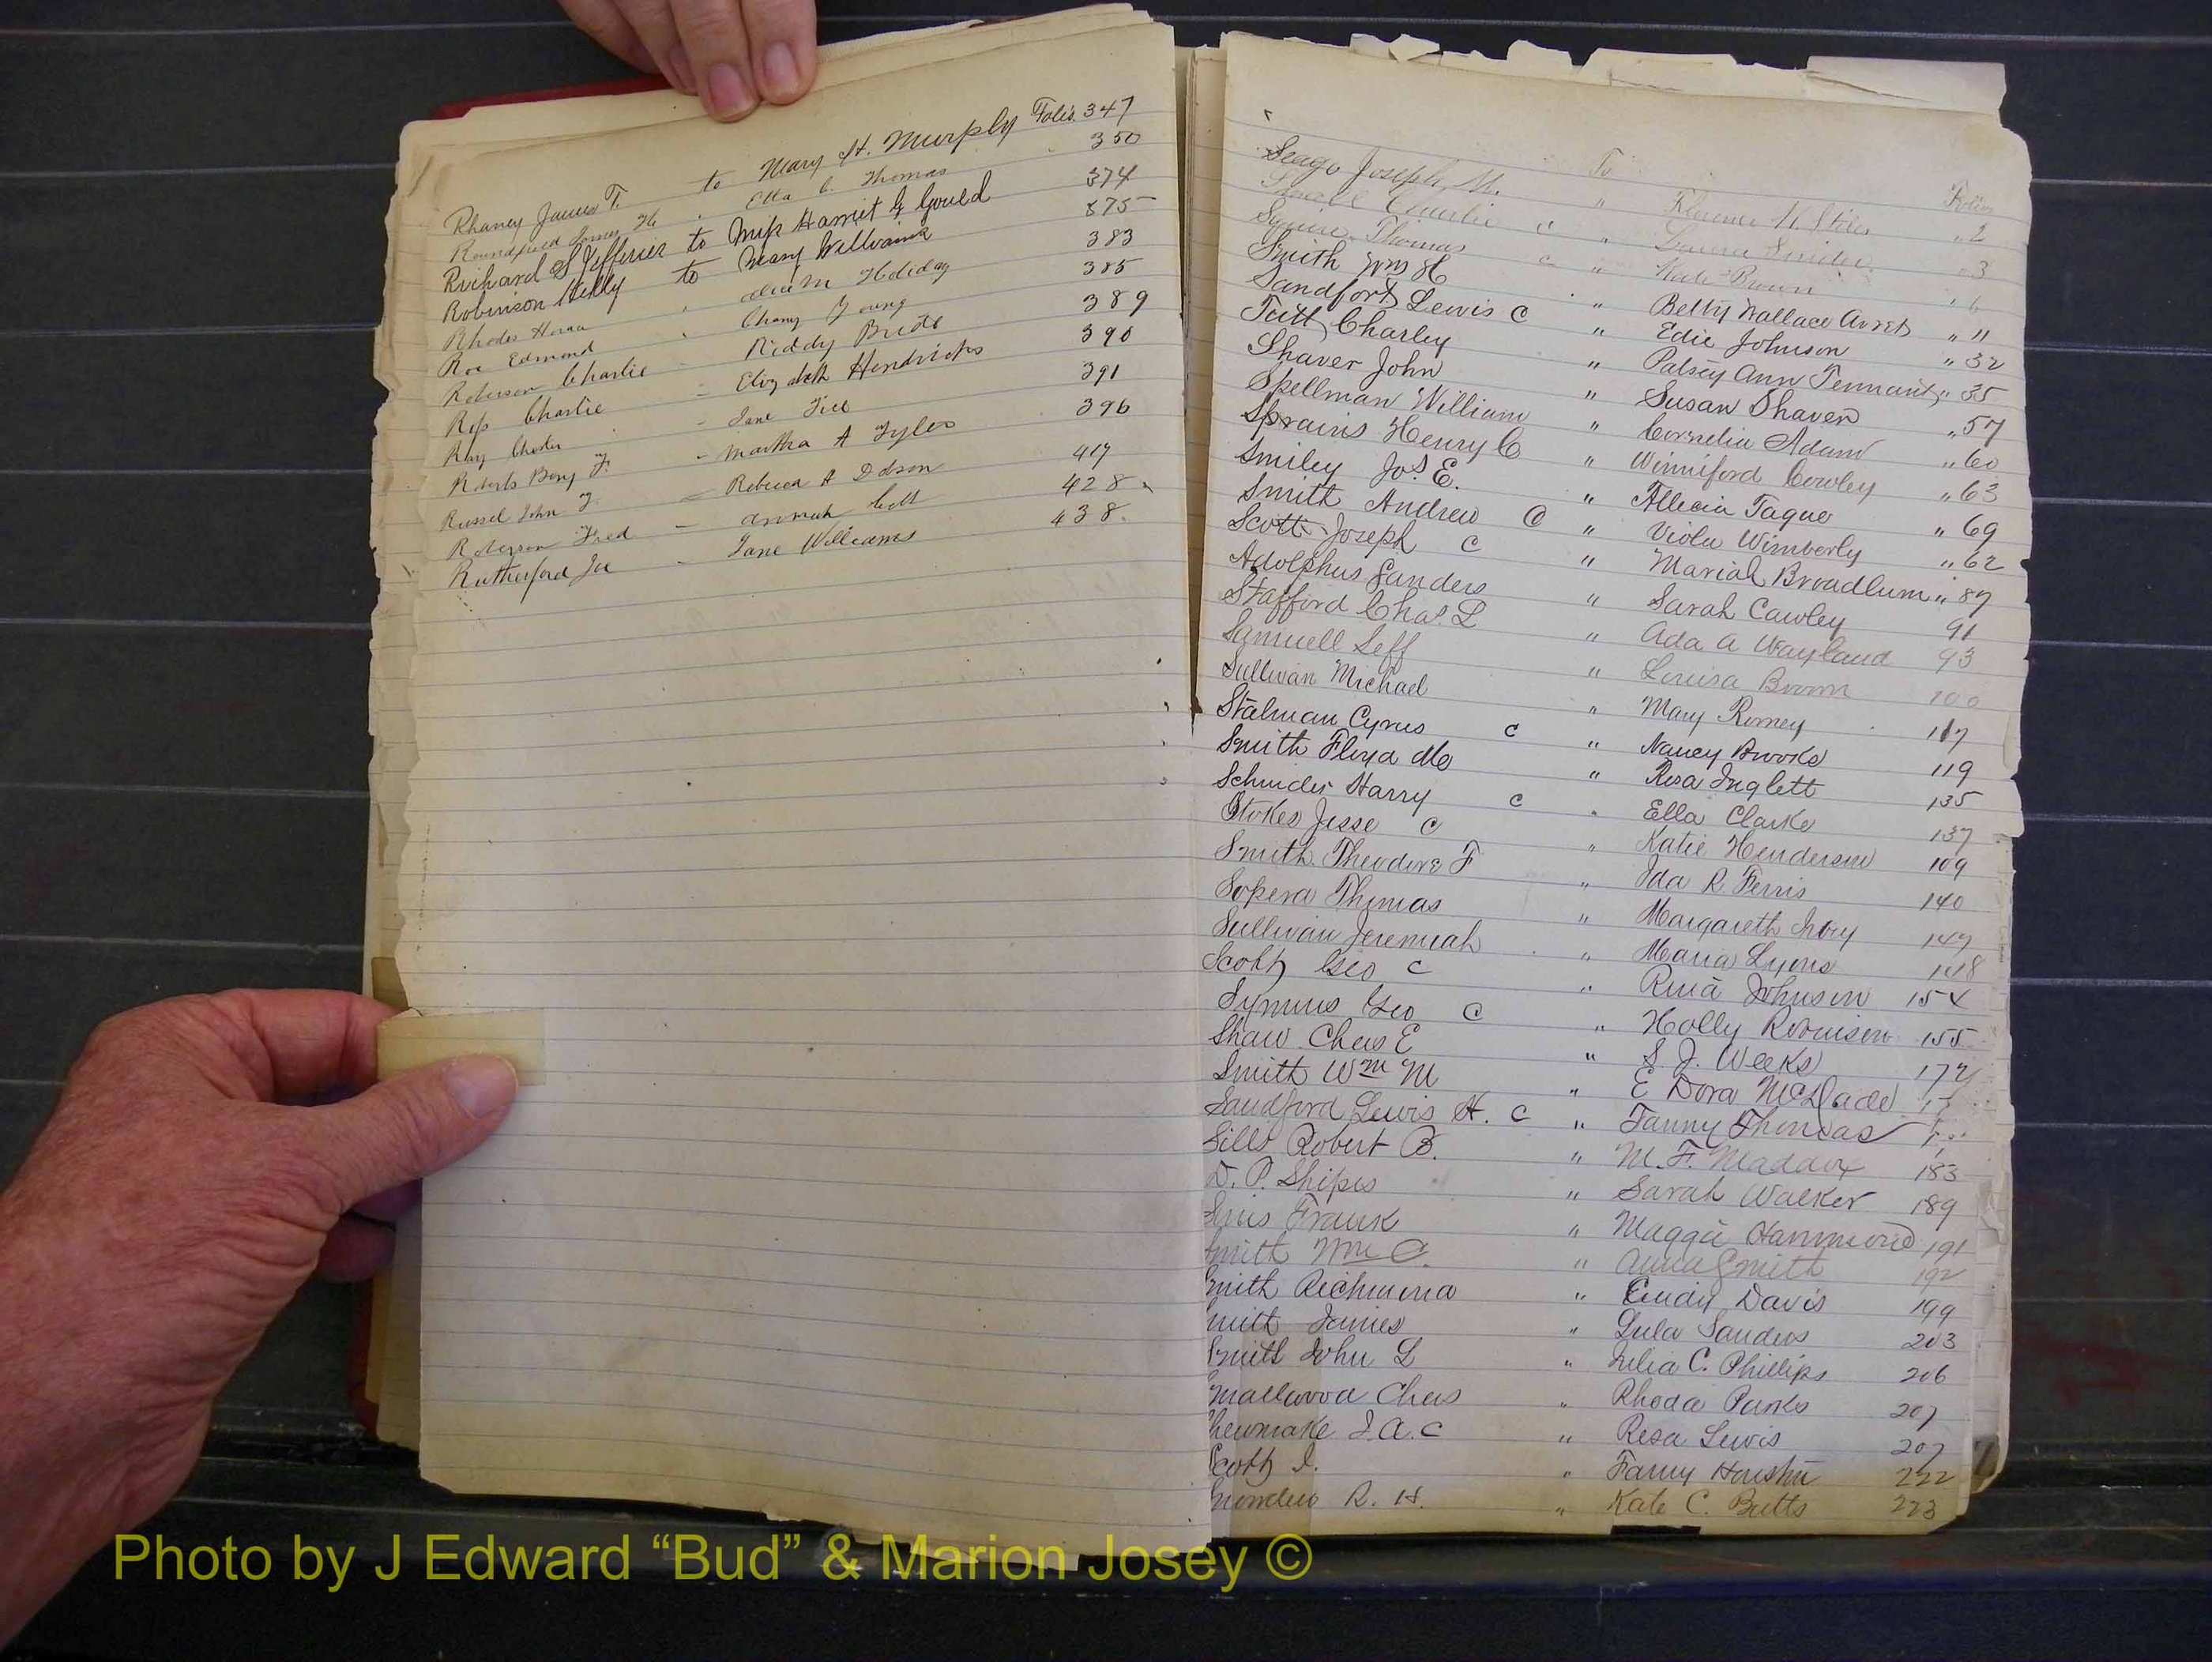 Rhaney James T. to Mary H. Murphy Folio 347
Roundfield James H " Etta C. Thomas 350
Richard S Jefferies to Miss Harriet G Gould 374
Robinson Kelly to Mary 375
Rhodes " Alice M Holiday 383
Roe Edmond " Young 385
Roberson Charlie - Kiddy 389
Charlie - Elizabeth Hendricks 390
Ray - Jane 391
Roberts Benj F. - Martha A Tyler 396
Russel John J. - Rebecca A Dotson 417
Roberson Fred - Annah 428
Rutherford Joe - Jane Williams 438.
Seago Joseph M. To Folio
Charlie c " Florence N. Stiles " 2
Squire Thomas c " Laura Snider " 3
Smith Wm H " Kate Brown
Sandfort Lewis C " Betty Wallace " 11
Tutt Charley " Edie Johnson " 32
Shaver John " Patsey Ann Tennant " 35
Spellman William " Susan Shaver " 57
Sprains Henry C " Cornelia Adam " 60
Smiley Jos. E. " Winniford Cowley " 63
Smith Andrew C " Allecia Tague " 69
Scott Joseph C " Viola Wimberly " 62
Adolphus Sanders " Mariah Broadlum " 87
Stafford Chas. L " Sarah Cawley 91
Samuell Jeff " Ada A Wayland 93
Sullivan Michael " Louisa Broom 100
Stalman Cyrus C " Mary Romey 117
Smith Floyd Mc " Nancy Brooks 119
Schnider Harry C " Rosa Inglett 135
Stokes Jesse C " Ella Clarke 137
Smith Theodore F " Katie Henderson 109
Sopera Thomas " Ida R. Ferris 140
Sullivan Jeremiah " Margareth Ivory 147
Scott Geo C " Maria Lyons 148
Symms Geo C " Rina Johnson 154
Shaw Chas E " Holly Robinson 155
Smith Wm M " S. J. Weeks 172
Sandford Lewis H. C " E Dora McDade
Sills Robert B. " Fanny Thomas
D. P. Shipes " M. F. Maddox 183
Frank " Sarah Walker 189
Smith Wm C. " Maggie Hammond 191
Smith Richmond " Anna Smith 192
Smith James " Cindy Davis 199
Smith John L " Lula Sanders 203
Smallwood Chas " Julia C. Phillips 206
Shewmake J. A. C " Rhoda Parks 207
Scott J. " Rosa Lewis 207
R. H. " Fanny 222
" Kate C. Butts 223
Photo by J Edward “Bud” & Marion Josey ©